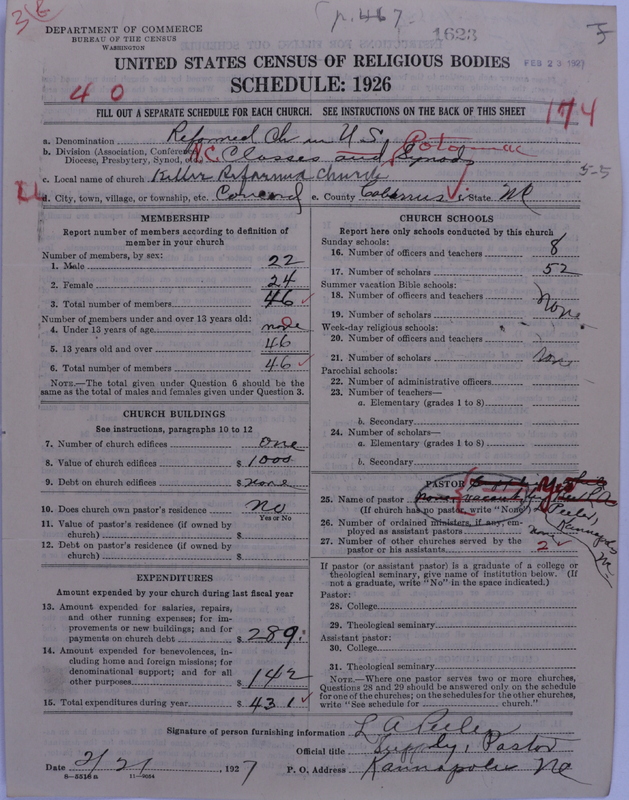 36
p. 467
1623
DEPARTMENT OF COMMERCE
BUREAU OF THE CENSUS
WASHINGTON
FEB 23 1927
UNITED STATES CENSUS OF RELIGIOUS BODIES
SCHEDULE: 1926
4 0
174
FILL OUT A SEPARATE SCHEDULE FOR EACH CHURCH. SEE INSTRUCTIONS ON THE BACK OF THIS SHEET
a. Denomination Reformed Ch in U.S.
b. Division (Association, Conference, Diocese, Presbytery, Synod, etc.) N.C. Classes and Potomac Synod
5-5
c. Local name of church Keller Reformed Church
d. City, town, village, or township, etc. Concord e. County Cabarrus State NC
MEMBERSHIP
Report number of members according to definition of
member in your church
Number of members, by sex:
1. Male 22
2. Female 24
3. Total number of members 46
Number of members under and over 13 years old:
4. Under 13 years of age none
5. 13 years old and over 46
6. Total number of members 46
NOTE.—The total given under Question 6 should be
same as the total of males and females given under Question 3.
CHURCH BUILDINGS
See instructions, paragraphs 10 to 12
7. Number of church edifices one
8. Value of church edifices $ 1000
9. Debt on church edifices $ none
10. Does church own pastor's residence No
Yes or No
11. Value of pastor's residence (if owned by
church) $
12. Debt on pastor's residence (if owned by
church) $
EXPENDITURES
Amount expended by your church during last fiscal year
13. Amount expended for salaries, repairs,
and other running expenses; for im-
provements or new buildings; and for
payments on church debt $ 289
14. Amount expended for benevolences, in-
cluding home and foreign missions; for
denominational support; and for all
other purposes $ 142
15. Total expenditures during year $ 431
CHURCH SCHOOLS
Report here only schools conducted by this church
Sunday schools:
16. Number of officers and teachers 8
17. Number of scholars 52
Summer vacation Bible schools:
18. Number of officers and teachers
None
19. Number of scholars
Week-day religious schools:
20. Number of officers and teachers
21. Number of scholars None
Parochial schools:
22. Number of administrative officers
23. Number of teachers—
a. Elementary (grades 1 to 8)
b. Secondary
24. Number of scholars—
a. Elementary (grades 1 to 8)
b. Secondary
PASTOR
25. Name of pastor
(If church has no pastor, write "None")
Peeler,
Kannapolis
NC
26. Number of ordained ministers, if any, em-
ployed as assistant pastors none
27. Number of other churches served by the
pastor or his assistants 2
If pastor (or assistant pastor) is a graduate of a college or
theological seminary, give name of institution below. (If
not a graduate, write "No" in the space indicated.)
Pastor:
28. College
29. Theological seminary
Assistant pastor:
30. College
31. Theological seminary
NOTE.—Where one pastor serves two or more churches,
Questions 28 and 29 should be answered only on the schedule
for one of the churches; on the schedules for the other churches,
write "See schedule for church."
Signature of person furnishing information L A Peeler
Official title Supply, Pastor
Date 2/21, 1927 P. O. Address Kannapolis NC
8—5516 a 11—9054